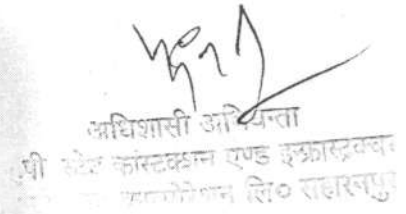 अधिशासी अभियन्ता
पी स्टेट कांस्टक्शन एण्ड इन्फ्रास्ट्रक्चर
कारपोरेशन लि० सहारनपु